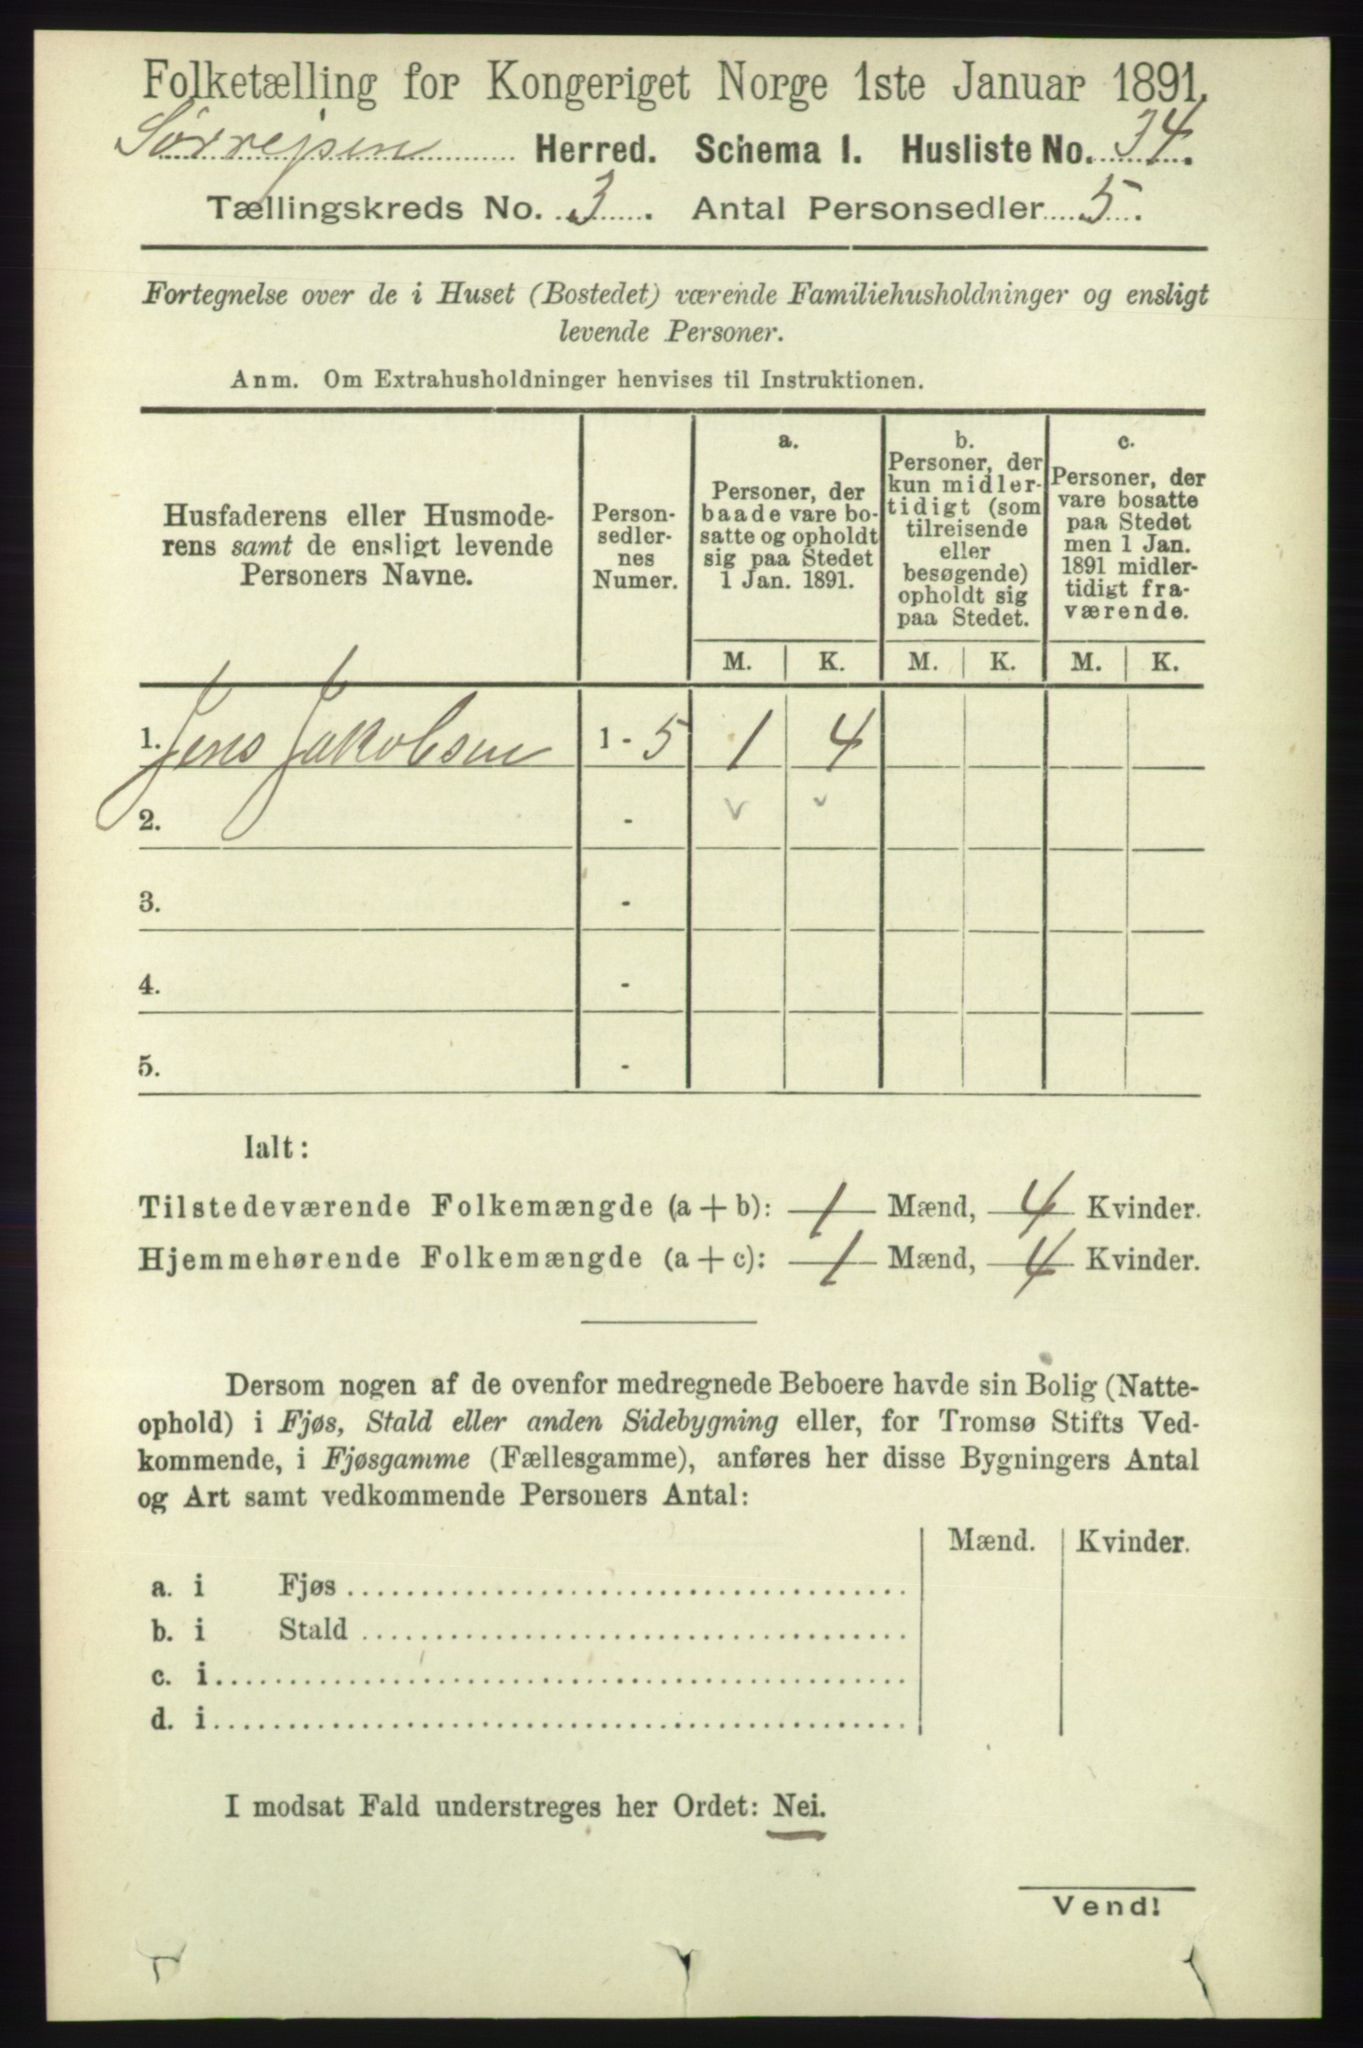 Folketælling for Kongeriget Norge 1ste Januar 1891.
Sørrejsen Herred. Schema I. Husliste No. 34.
Tællingskreds No. 3. Antal Personsedler 5.
Fortegnelse over de i Huset (Bostedet) værende Familiehusholdninger og ensligt
levende Personer.
Anm. Om Extrahusholdninger henvises til Instruktionen.
Husfaderens eller Husmode-
rens samt de ensligt levende
Personers Navne.
Person-
sedler-
nes
Numer.
a.
Personer, der
baade vare bo-
satte og opholdt
sig paa Stedet
1 Jan. 1891.
b.
Personer, der
kun midler-
tidigt (som
tilreisende
eller
besøgende)
opholdt sig
paa Stedet.
c.
Personer, der
vare bosatte
paa Stedet
men 1 Jan.
1891 midler-
tidigt fra-
værende.
M. K. M. K. M. K.
1. Jens Jakobsen 1 - 5 1 4
2. -
3. -
4. -
5. -
Ialt:
Tilstedeværende Folkemængde (a + b): 1 Mænd, 4 Kvinder.
Hjemmehørende Folkemængde (a + c): 1 Mænd, 4 Kvinder.
Dersom nogen af de ovenfor medregnede Beboere havde sin Bolig (Natte-
ophold) i Fjøs, Stald eller anden Sidebygning eller, for Tromsø Stifts Ved-
kommende, i Fjøsgamme (Fællesgamme), anføres her disse Bygningers Antal
og Art samt vedkommende Personers Antal:
Mænd. Kvinder.
a. i Fjøs
b. i Stald
c. i
d. i
I modsat Fald understreges her Ordet: Nei.
Vend!